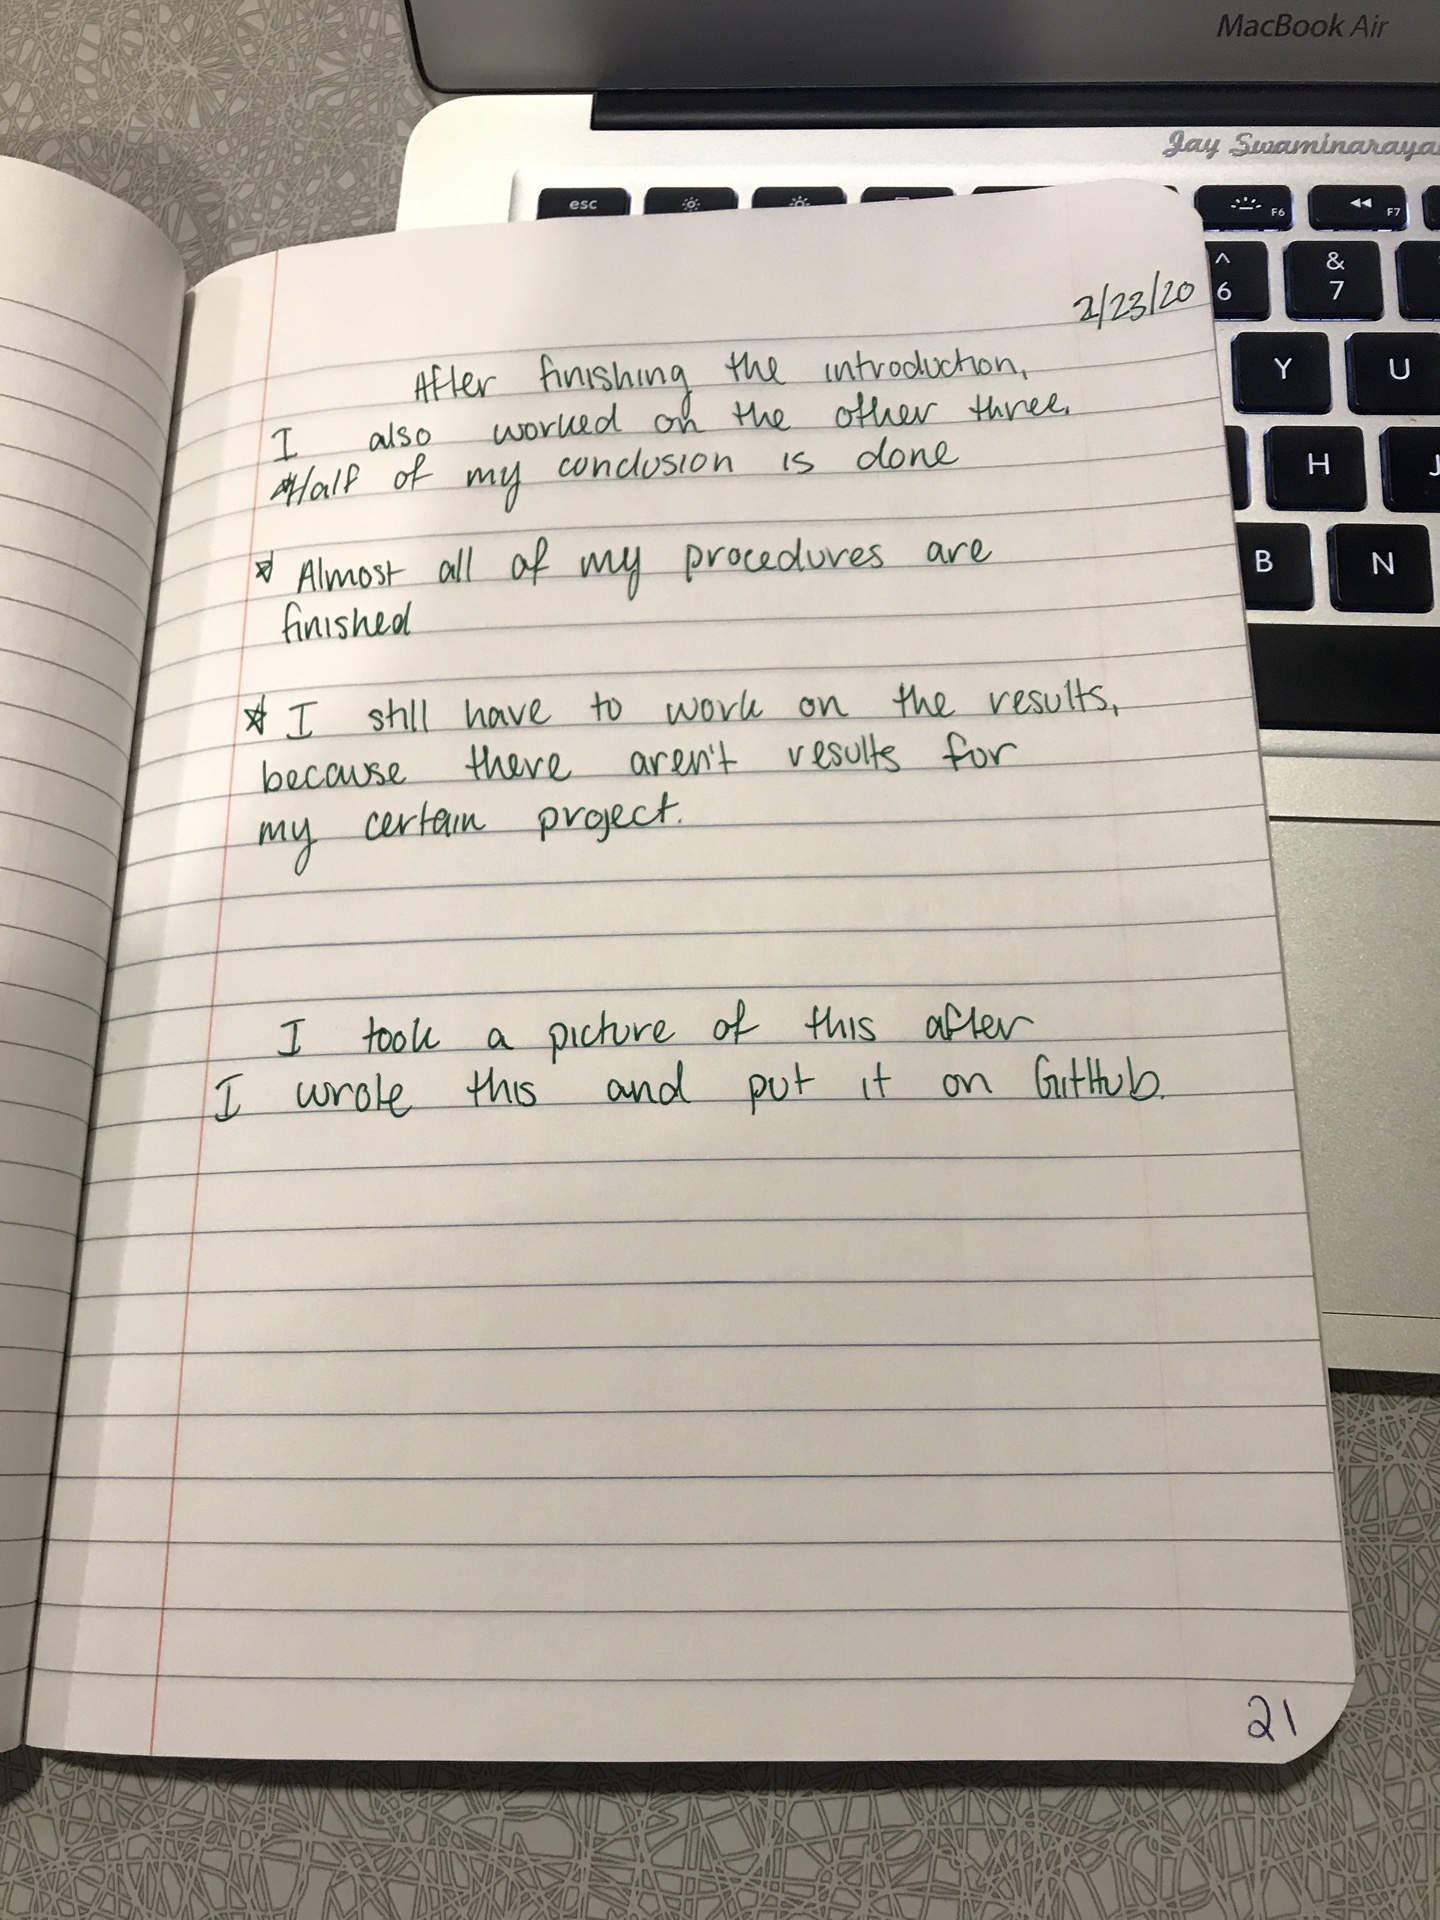 MacBook Air
Jay Swaminaraya
esc
F6
F7
^
6
&
7
Y
U
H
J
B
N
2/23/20
After finishing the introduction,
I also worked on the other three.
☆Half of my conclusion is done
☆ Almost all of my procedures are
finished
☆ I still have to work on the results,
because there aren't results for
my certain project.
I took a picture of this after
I wrote this and put it on GitHub.
21